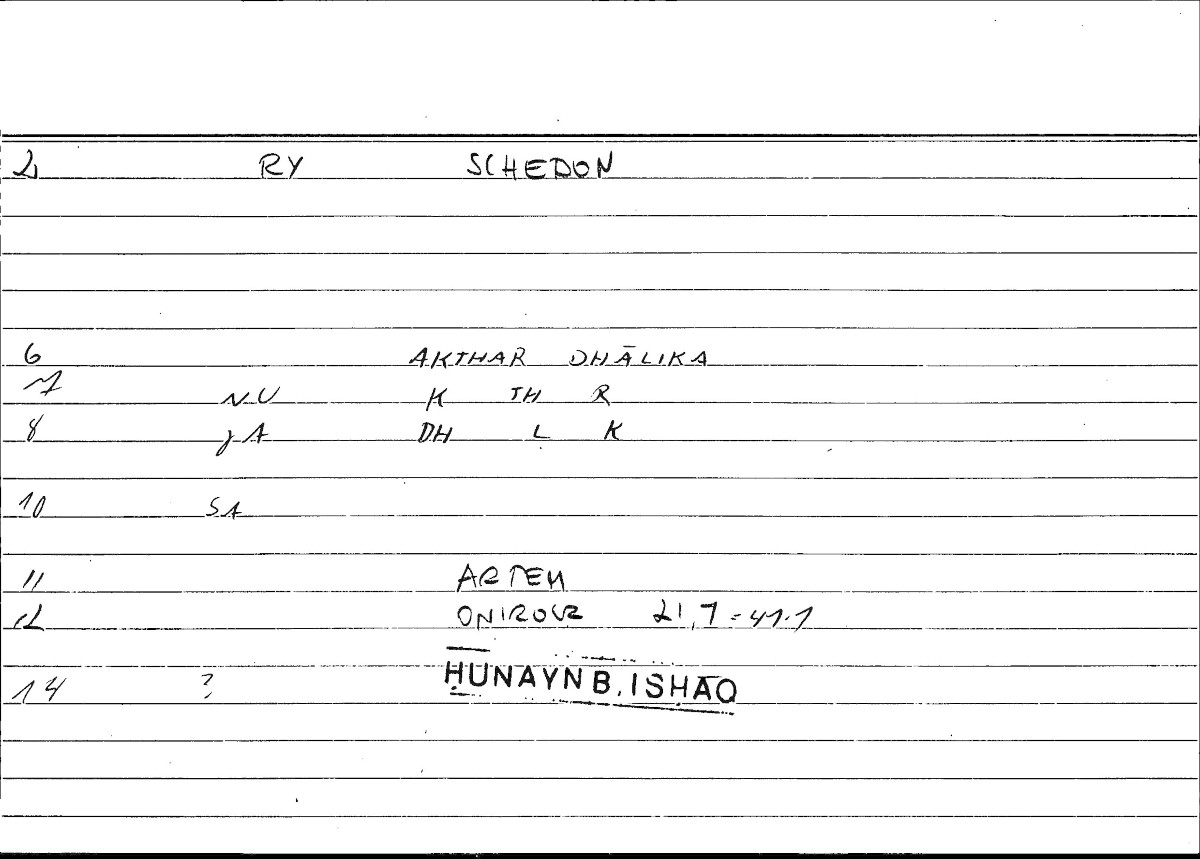 2 RY SCHEDON
6 AKTHAR DHĀLIKA
7 NU K TH R
8 JA DH L K
10 SA
11 ARTEM
12 ONIROCR 21,7 = 41.1
14 ? ḤUNAYN B. ISḤĀQ